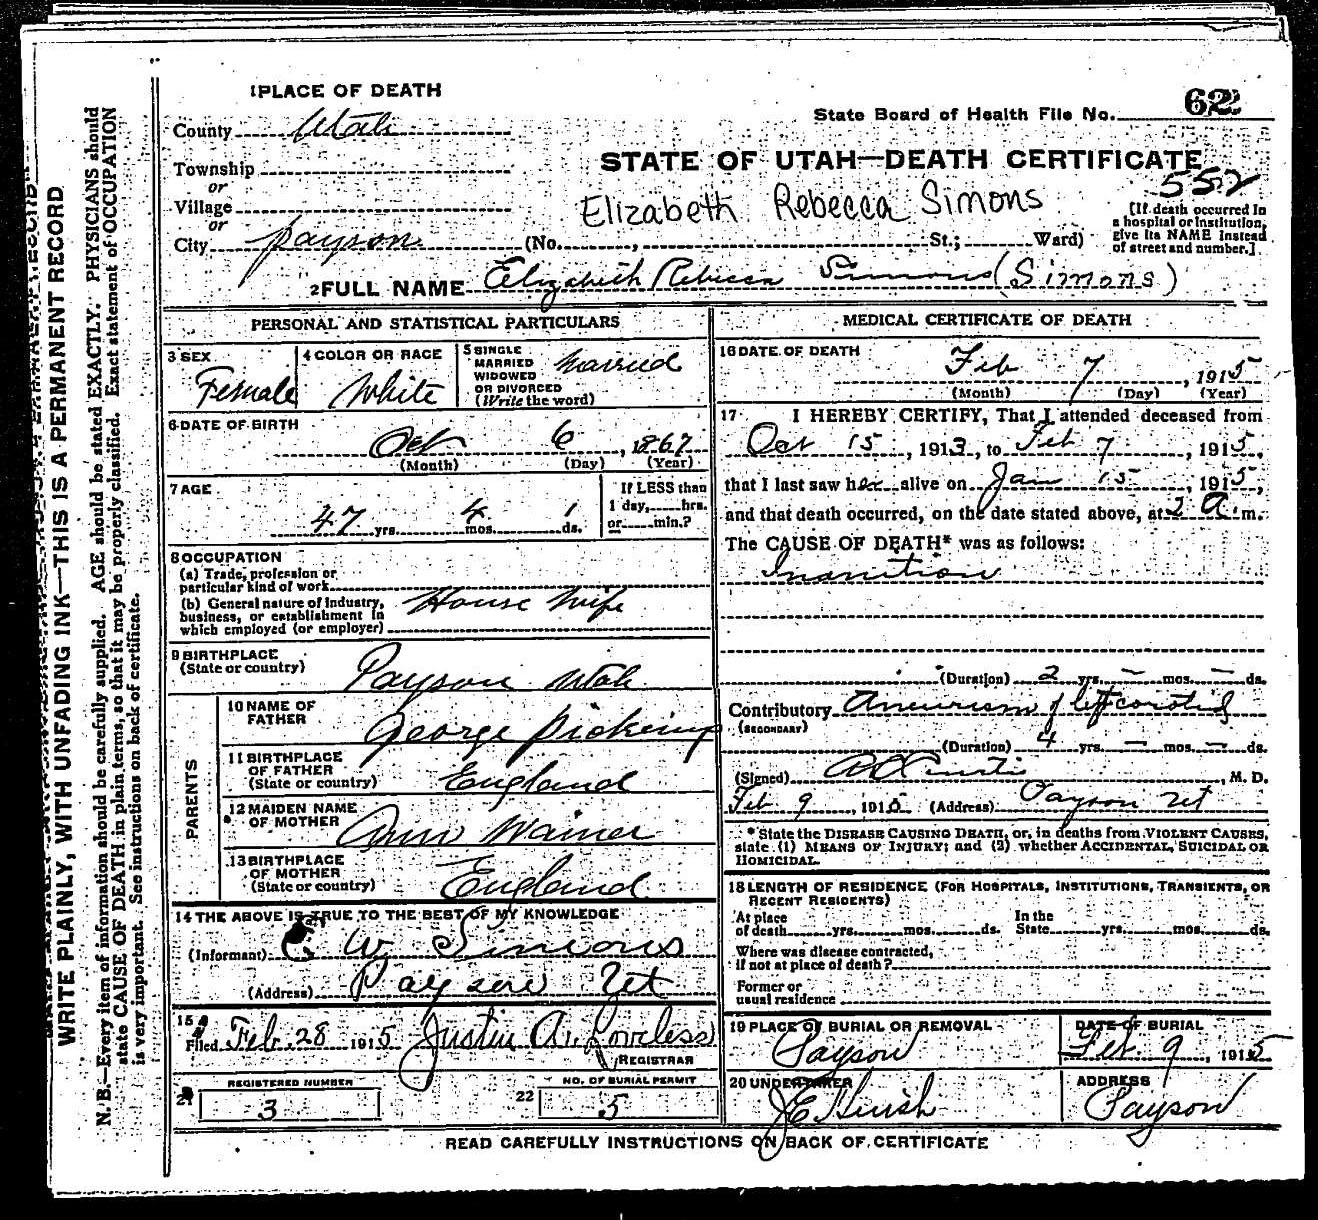 1 PLACE OF DEATH
State Board of Health File No. 62
County Utah
STATE OF UTAH—DEATH CERTIFICATE
Township
or
Village
or
City Payson (No. , St.; Ward)
552
Elizabeth Rebecca Simons
(If death occurred in
a hospital or institution,
give its NAME instead
of street and number.]
2 FULL NAME Elizabeth Rebecca Simons (Simons)
PERSONAL AND STATISTICAL PARTICULARS
3 SEX
Female
4 COLOR OR RACE
White
5 SINGLE
MARRIED
WIDOWED
OR DIVORCED
(Write the word)
Married
6 DATE OF BIRTH
Oct 6, 1867
(Month) (Day) (Year)
7 AGE
47 yrs. 4 mos. 1 ds.
If LESS than
1 day, hrs.
or min.?
8 OCCUPATION
(a) Trade, profession or
particular kind of work
(b) General nature of industry,
business, or establishment in
which employed (or employer)
House Wife
9 BIRTHPLACE
(State or country) Payson Utah
PARENTS
10 NAME OF
FATHER George Pickering
11 BIRTHPLACE
OF FATHER
(State or country) England
12 MAIDEN NAME
OF MOTHER Ann Wainer
13 BIRTHPLACE
OF MOTHER
(State or country) England
14 THE ABOVE IS TRUE TO THE BEST OF MY KNOWLEDGE
(Informant) W Simons
(Address) Payson Ut
15
Filed Feb. 28 1915 Justin A. Loveless
REGISTRAR
REGISTERED NUMBER
21 3
NO. OF BURIAL PERMIT
22 5
MEDICAL CERTIFICATE OF DEATH
16 DATE OF DEATH
Feb 7, 1915
(Month) (Day) (Year)
17 I HEREBY CERTIFY, That I attended deceased from
Oct 15, 1913, to Feb 7, 1915,
that I last saw her alive on Jan 15, 1915,
and that death occurred, on the date stated above, at 2 A.m.
The CAUSE OF DEATH* was as follows:
Inanition
(Duration) 2 yrs. — mos. — ds.
Contributory Aneurism of left carotid
(SECONDARY)
(Duration) 4 yrs. — mos. — ds.
(Signed) , M. D.
Feb 9, 1915 (Address) Payson Ut
* State the DISEASE CAUSING DEATH, or, in deaths from VIOLENT CAUSES,
state (1) MEANS OF INJURY; and (2) whether ACCIDENTAL, SUICIDAL OR
HOMICIDAL.
18 LENGTH OF RESIDENCE (FOR HOSPITALS, INSTITUTIONS, TRANSIENTS, OR
RECENT RESIDENTS)
At place
of death yrs. mos. ds.
In the
State yrs. mos. ds.
Where was disease contracted,
if not at place of death?
Former or
usual residence
19 PLACE OF BURIAL OR REMOVAL
Payson
DATE OF BURIAL
Feb 9, 1915
20 UNDERTAKER
ADDRESS
Payson
READ CAREFULLY INSTRUCTIONS ON BACK OF CERTIFICATE
WRITE PLAINLY, WITH UNFADING INK—THIS IS A PERMANENT RECORD
N. B.—Every item of information should be carefully supplied. AGE should be stated EXACTLY. PHYSICIANS should
state CAUSE OF DEATH in plain terms, so that it may be properly classified. Exact statement of OCCUPATION
is very important. See instructions on back of certificate.